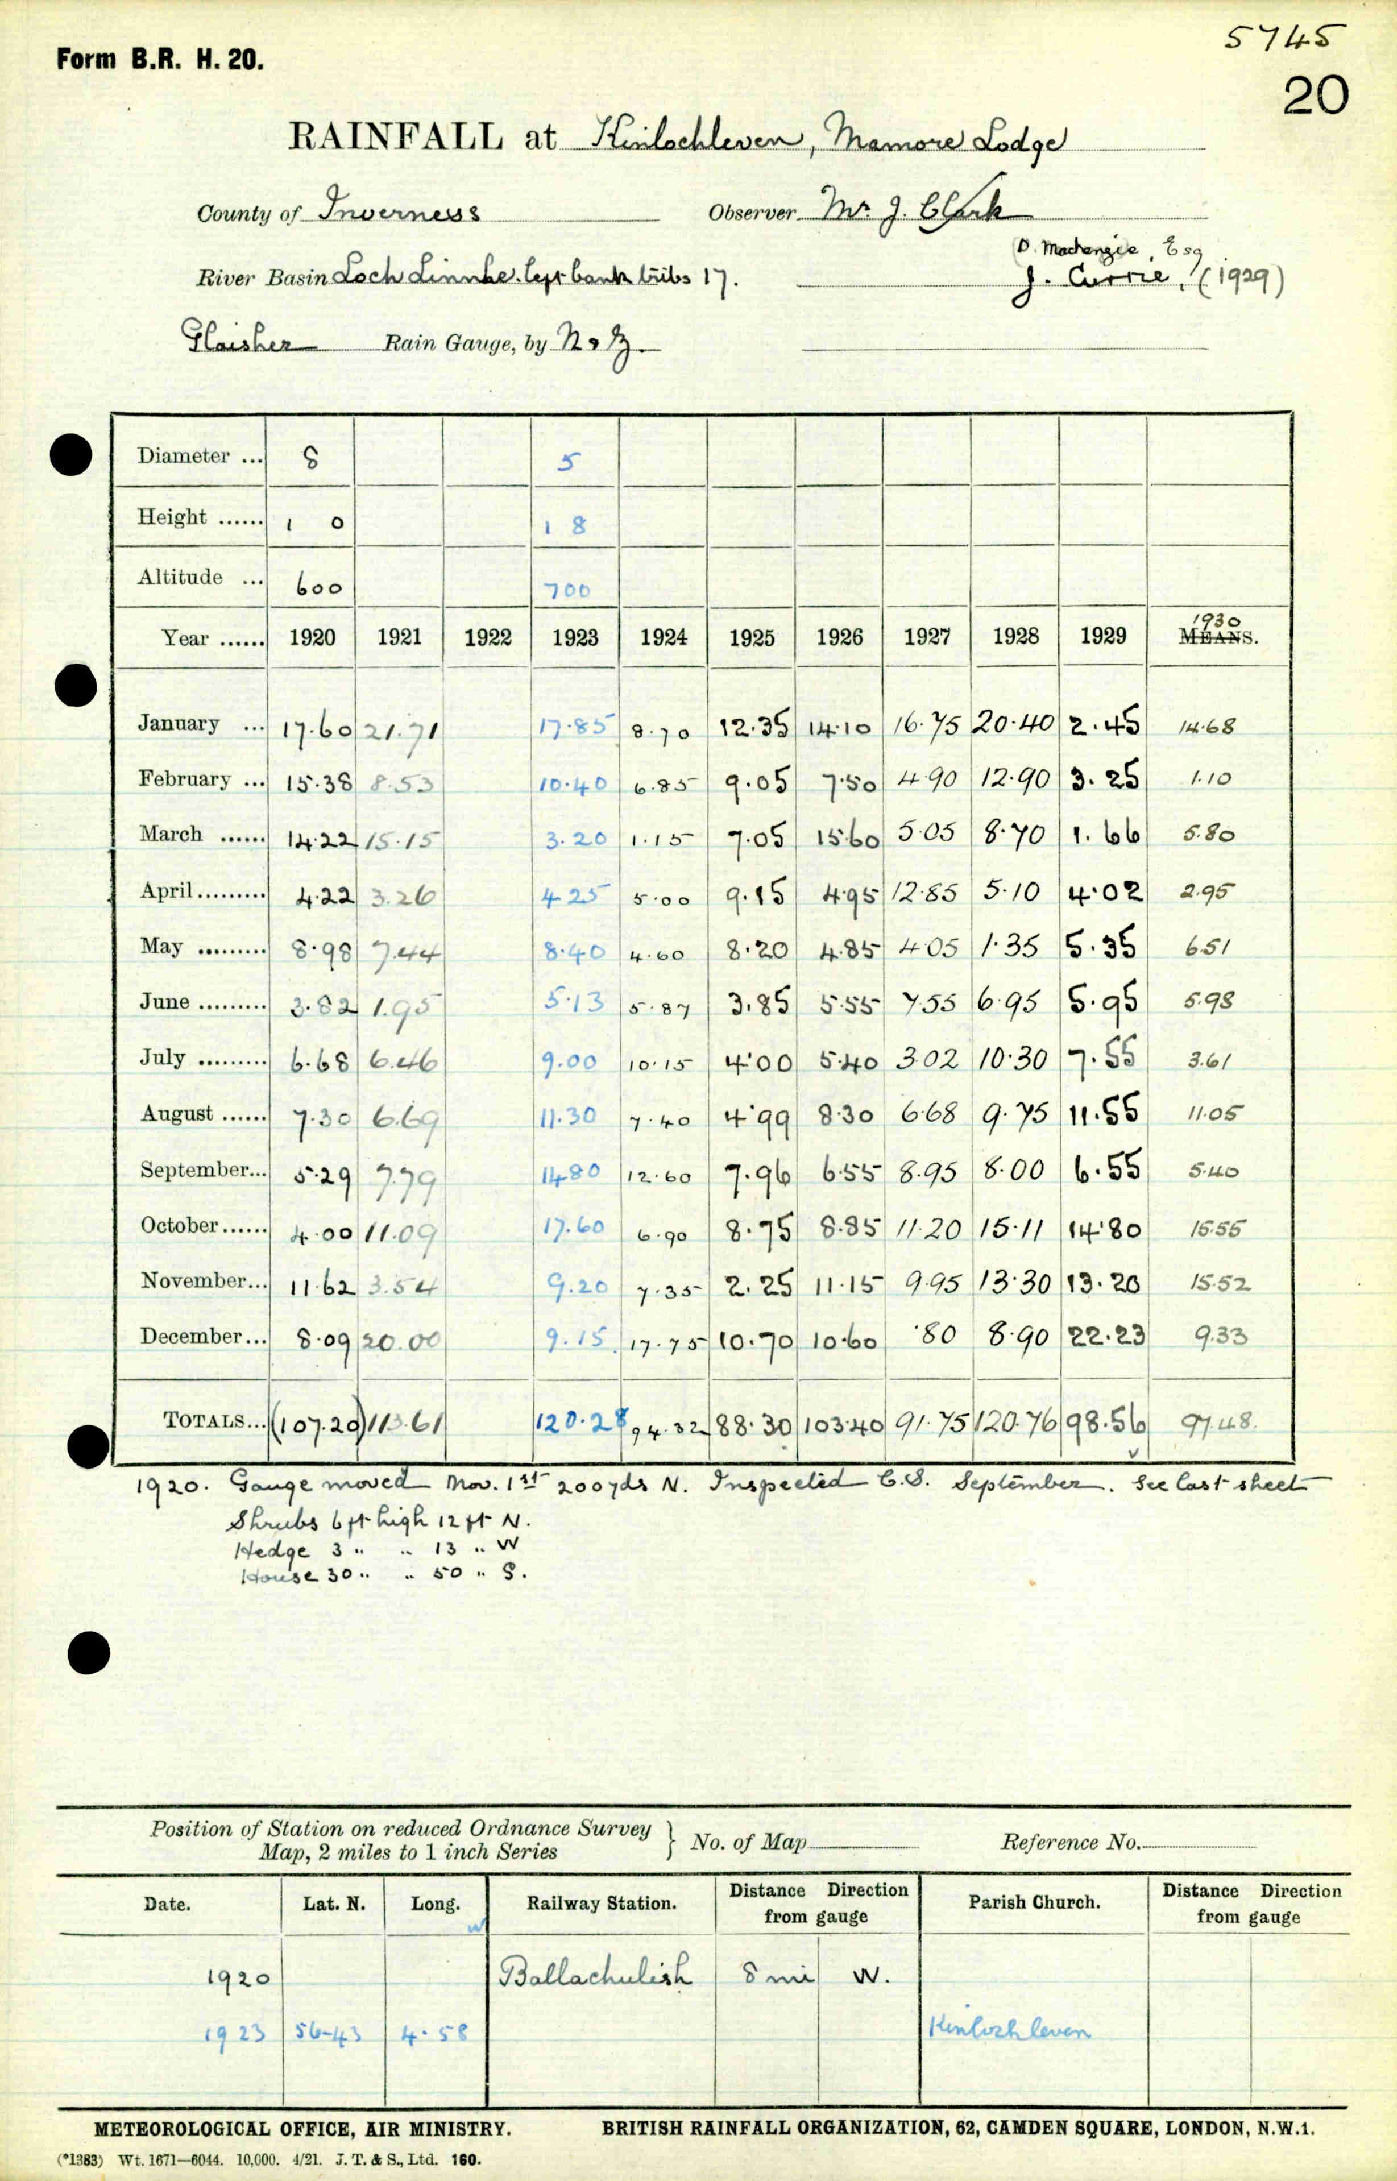 5745
Form B.R. H. 20.
20
RAINFALL at Kinlochleven, Mamore Lodge
County of Inverness Observer Mr. J. Clark
D. Mackenzie, Esq
River Basin Loch Linnhe. left bank tribs 17. J. Currie, (1929)
Glaisher Rain Gauge, by N & Z.
Diameter ... 8 5
Height ...... 1 0 1 8
Altitude ... 600 700
1930
Year ...... 1920 1921 1922 1923 1924 1925 1926 1927 1928 1929 MEANS.
January ... 17.60 21.71 17.85 8.70 12.35 14.10 16.75 20.40 2.45 14.68
February ... 15.38 8.53 10.40 6.85 9.05 7.50 4.90 12.90 3.25 1.10
March ...... 14.22 15.15 3.20 1.15 7.05 15.60 5.05 8.70 1.66 5.80
April ......... 4.22 3.26 4.25 5.00 9.15 4.95 12.85 5.10 4.02 2.95
May ......... 8.98 7.44 8.40 4.60 8.20 4.85 4.05 1.35 5.35 6.51
June ......... 3.82 1.95 5.13 5.87 3.85 5.55 7.55 6.95 5.95 5.98
July ......... 6.68 6.46 9.00 10.15 4.00 5.40 3.02 10.30 7.55 3.61
August ...... 7.30 6.69 11.30 7.40 4.99 8.30 6.68 9.75 11.55 11.05
September... 5.29 7.79 14.80 12.60 7.96 6.55 8.95 8.00 6.55 5.40
October ...... 4.00 11.09 17.60 6.90 8.75 8.85 11.20 15.11 14.80 15.55
November... 11.62 3.54 9.20 7.35 2.25 11.15 9.95 13.30 13.20 15.52
December... 8.09 20.00 9.15 17.75 10.70 10.60 .80 8.90 22.23 9.33
TOTALS... (107.20) 113.61 120.28 94.32 88.30 103.40 91.75 120.76 98.56 97.48
1920. Gauge moved Nov. 1st 200 yds N. Inspected C.S. September. See last sheet
Shrubs 6 ft high 12 ft N.
Hedge 3 " " 13 " W
House 30 " " 50 " S.
Position of Station on reduced Ordnance Survey
Map, 2 miles to 1 inch Series } No. of Map Reference No.
Date. Lat. N. Long. W Railway Station. Distance Direction from gauge Parish Church. Distance Direction from gauge
1920 Ballachulish 8 mi W.
1923 56-43 4.58 Kinlochleven
METEOROLOGICAL OFFICE, AIR MINISTRY. BRITISH RAINFALL ORGANIZATION, 62, CAMDEN SQUARE, LONDON, N.W.1.
(*1383) Wt. 1671—6044. 10,000. 4/21. J. T. & S., Ltd. 160.